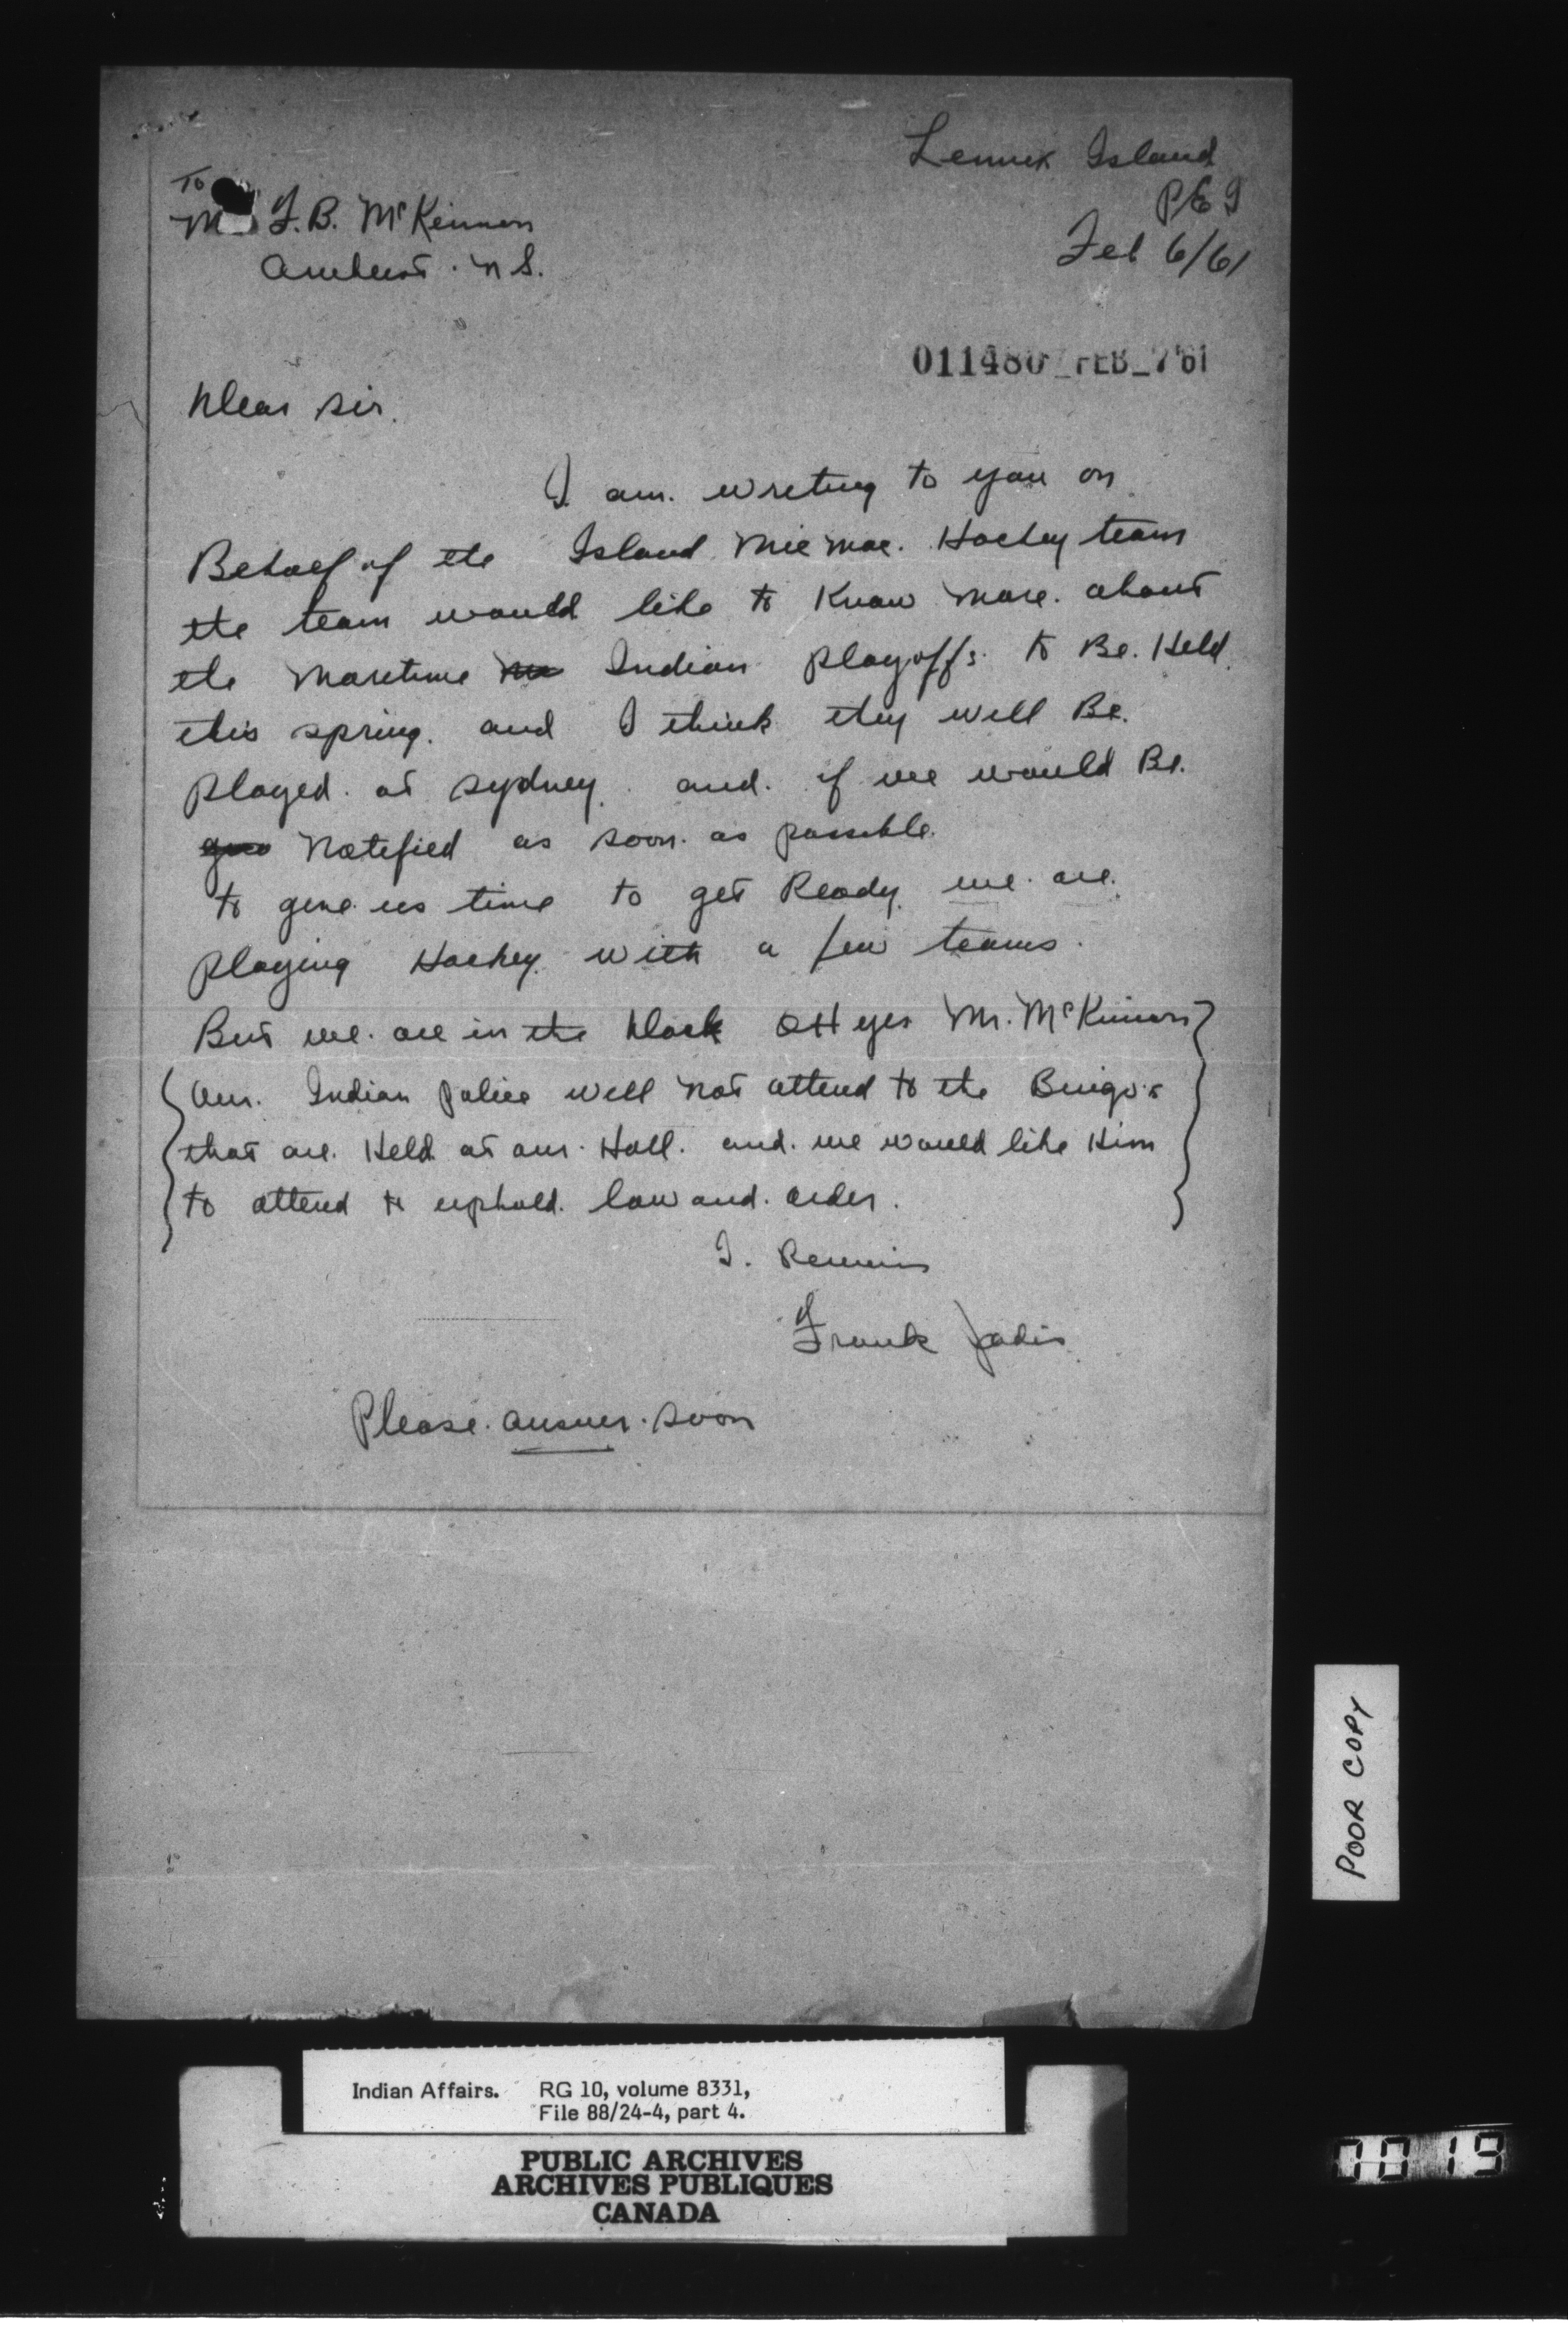 Lennox Island
P E I
Feb 6/61
To
Mr F.B. McKinnon
Amherst. N S.
011480 FEB 7 '61
Dear Sir.
I am. writing to you on
Behalf of the Island Micmac. Hockey team
the team would like to Know more. about
the Maritime Indian playoffs. to Be. Held
this spring. and I think they will Be.
played. at Sydney. and. if we would Be.
Notified as soon. as possible.
to give us time to get Ready. we. are.
playing Hockey. with a few teams.
But we. are in the black OH yes Mr. McKinnon
Our. Indian police will not attend to the Bingo's
that are. Held at our. Hall. and. we would like Him
to attend to uphold. law and. order.
I. Remain
Frank Jadis
Please. answer. soon
POOR COPY
Indian Affairs. RG 10, volume 8331,
File 88/24-4, part 4.
PUBLIC ARCHIVES
ARCHIVES PUBLIQUES
CANADA
0019